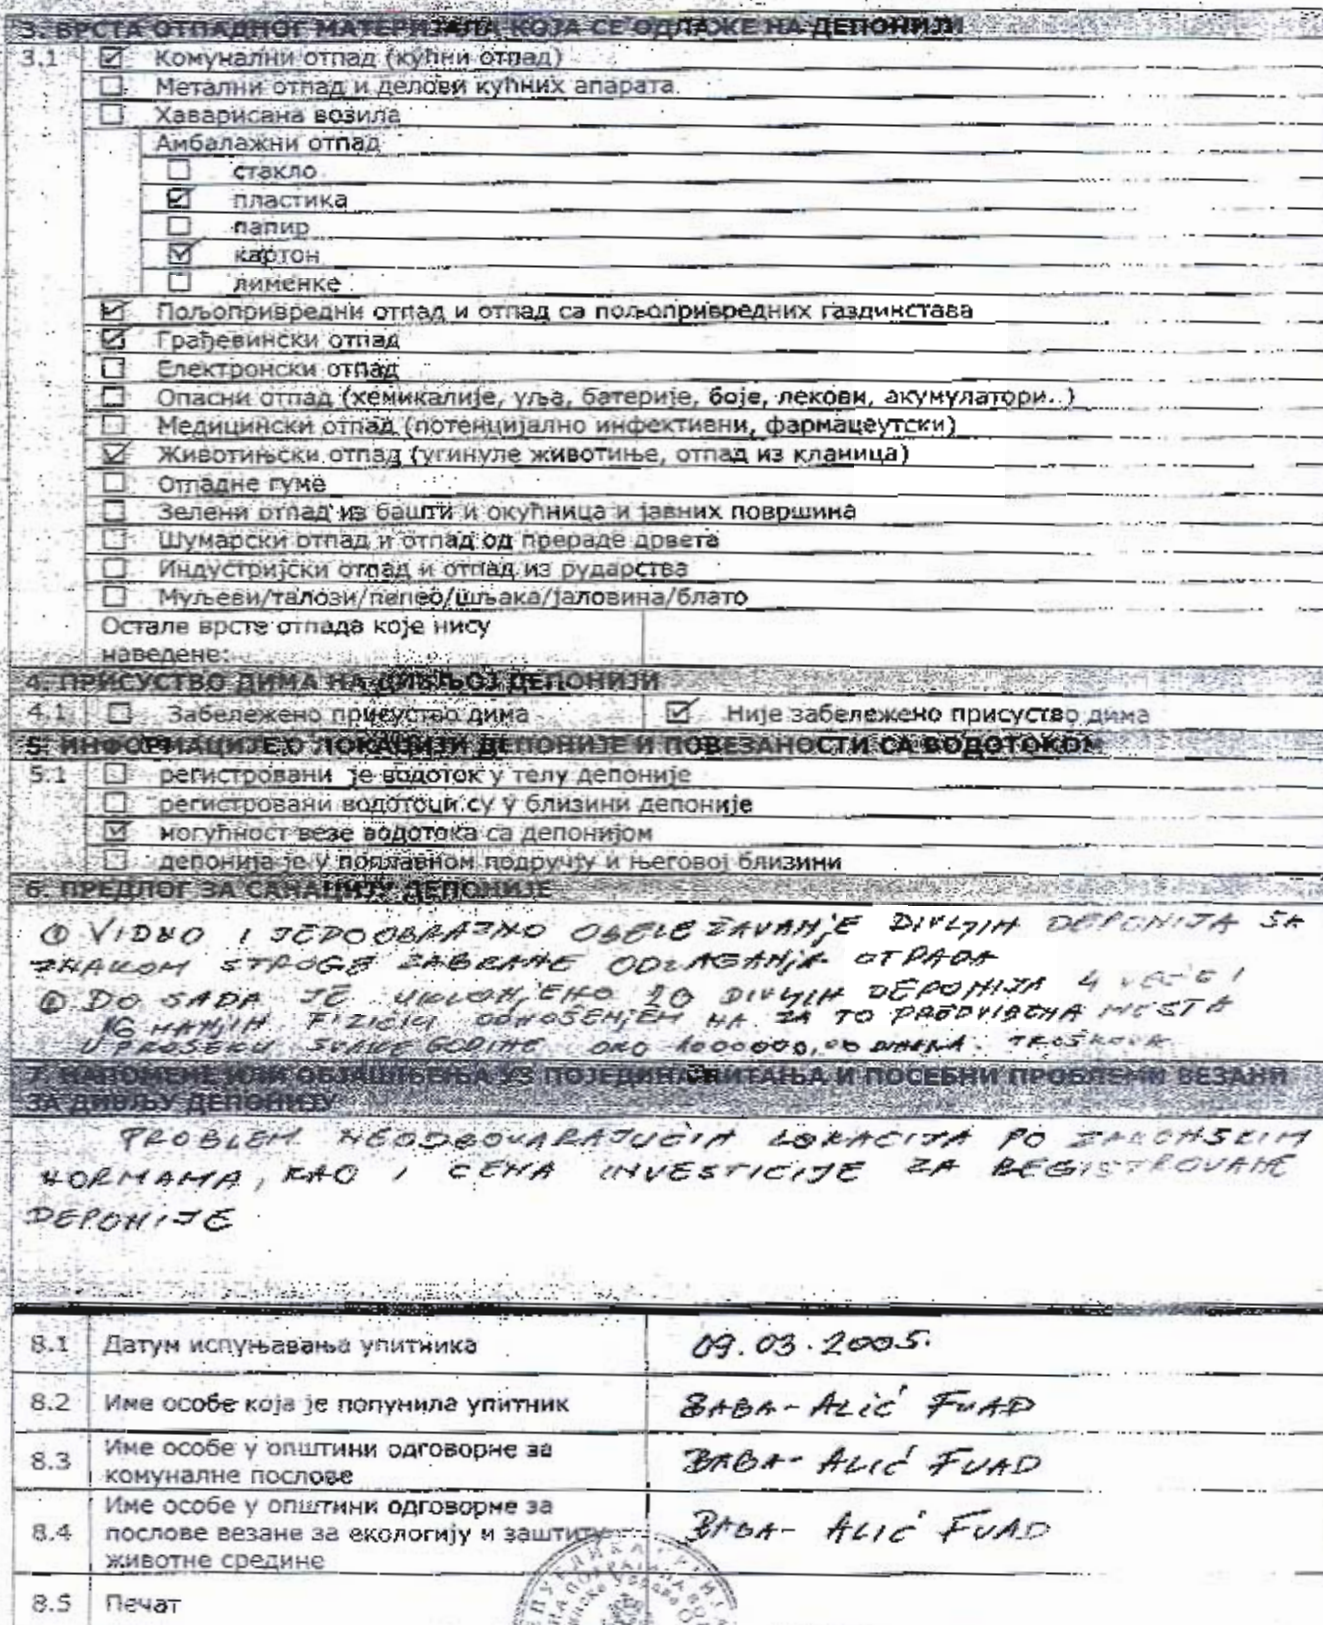 3. ВРСТА ОТПАДНОГ МАТЕРИЈАЛА КОЈА СЕ ОДЛАЖЕ НА ДЕПОНИЈИ
3.1 ☑ Комунални отпад (кућни отпад)
☐ Метални отпад и делови кућних апарата.
☐ Хаварисана возила
Амбалажни отпад
☐ стакло
☑ пластика
☐ папир
☑ картон
☐ лименке
☑ Пољопривредни отпад и отпад са пољопривредних газдинстава
☑ Грађевински отпад
☐ Електронски отпад
☐ Опасни отпад (хемикалије, уља, батерије, боје, лекови, акумулатори..)
☐ Медицински отпад (потенцијално инфективни, фармацеутски)
☑ Животињски отпад (угинуле животиње, отпад из кланица)
☐ Отпадне гуме
☐ Зелени отпад из башти и окућница и јавних површина
☐ Шумарски отпад и отпад од прераде дрвета
☐ Индустријски отпад и отпад из рударства
☐ Муљеви/талози/пепео/шљака/јаловина/блато
Остале врсте отпада које нису
наведене:
4. ПРИСУСТВО ДИМА НА ДИВЉОЈ ДЕПОНИЈИ
4.1 ☐ Забележено присуство дима ☑ Није забележено присуство дима
5. ИНФОРМАЦИЈЕ О ЛОКАЦИЈИ ДЕПОНИЈЕ И ПОВЕЗАНОСТИ СА ВОДОТОКОМ
5.1 ☐ регистровани је водоток у телу депоније
☐ регистровани водотоци су у близини депоније
☑ могућност везе водотока са депонијом
☐ депонија је у поплавном подручју и његовој близини
6. ПРЕДЛОГ ЗА САНАЦИЈУ ДЕПОНИЈЕ
① VIDNO I JEDOOBRAZNO OBELEŽAVANJE DIVLJIH DEPONIJA SA
ZNAKOM STROGE ZABRANE ODLAGANJA OTPADA
② DO SADA JE UKLONJENO 20 DIVLJIH DEPONIJA 4 VEĆE I
16 MANJIH FIZIČKI ODNOŠENJEM NA ZA TO PREDVIĐENA MESTA
U PROSEKU SVAKE GODINE OKO 1000000,00 DINARA TROŠKOVA
7. НАПОМЕНЕ ИЛИ ОБЈАШЊЕЊА УЗ ПОЈЕДИНА ПИТАЊА И ПОСЕБНИ ПРОБЛЕМИ ВЕЗАНИ
ЗА ДИВЉУ ДЕПОНИЈУ
PROBLEM NEODGOVARAJUĆIH LOKACIJA PO ZAKONSKIM
NORMAMA, KAO I CENA INVESTICIJE ZA REGISTROVANE
DEPONIJE
8.1 Датум испуњавања упитника 09.03.2005.
8.2 Име особе која је попунила упитник BABA-ALIĆ FUAD
8.3 Име особе у општини одговорне за
комуналне послове BABA-ALIĆ FUAD
8.4 Име особе у општини одговорне за
послове везане за екологију и заштиту
животне средине BABA-ALIĆ FUAD
8.5 Печат